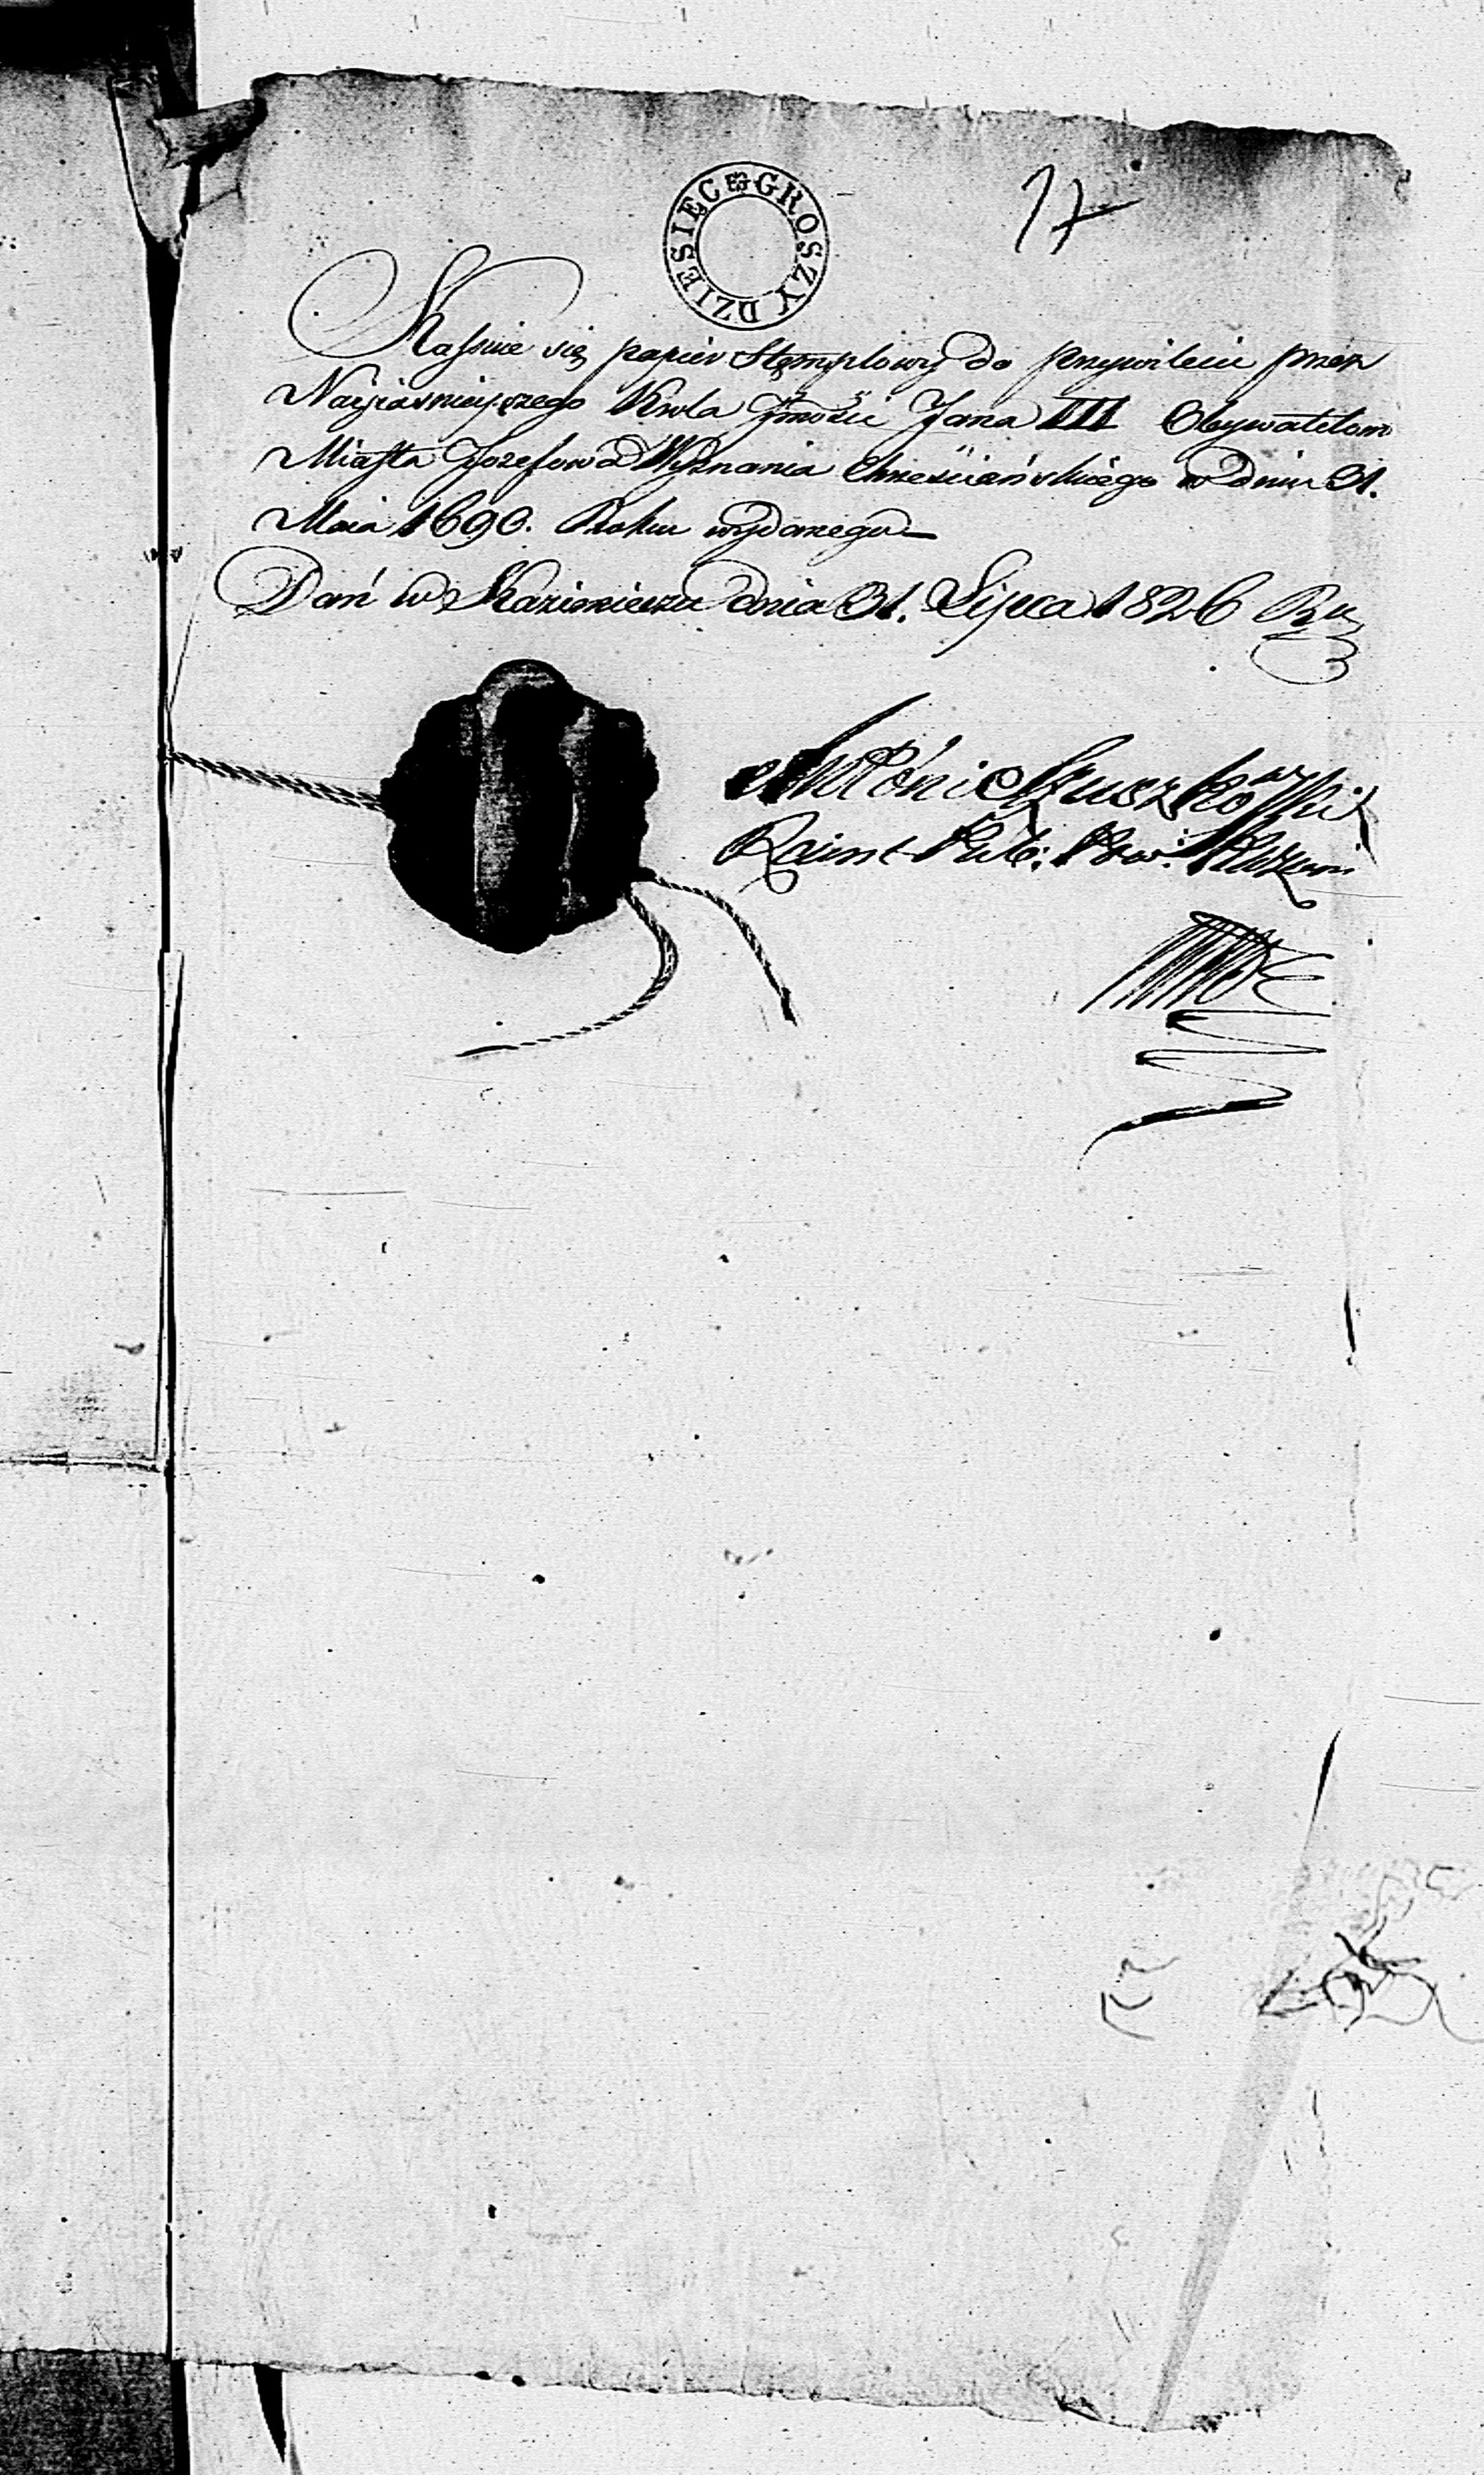 DZIESIĘC GROSZY
17
Kassuie się papier Stęmplowy do przywileiu przez
Nayiaśnieyszego Krola Jmości Jana III Obywatelom
Miasta Jozefowa Wyznania Chrześciańskiego w dniu 31.
Maia 1690. Roku wydanego
Dań w Kazimierzu dnia 31. Lipca 1826 Ru
Antóni
Reient Pub: